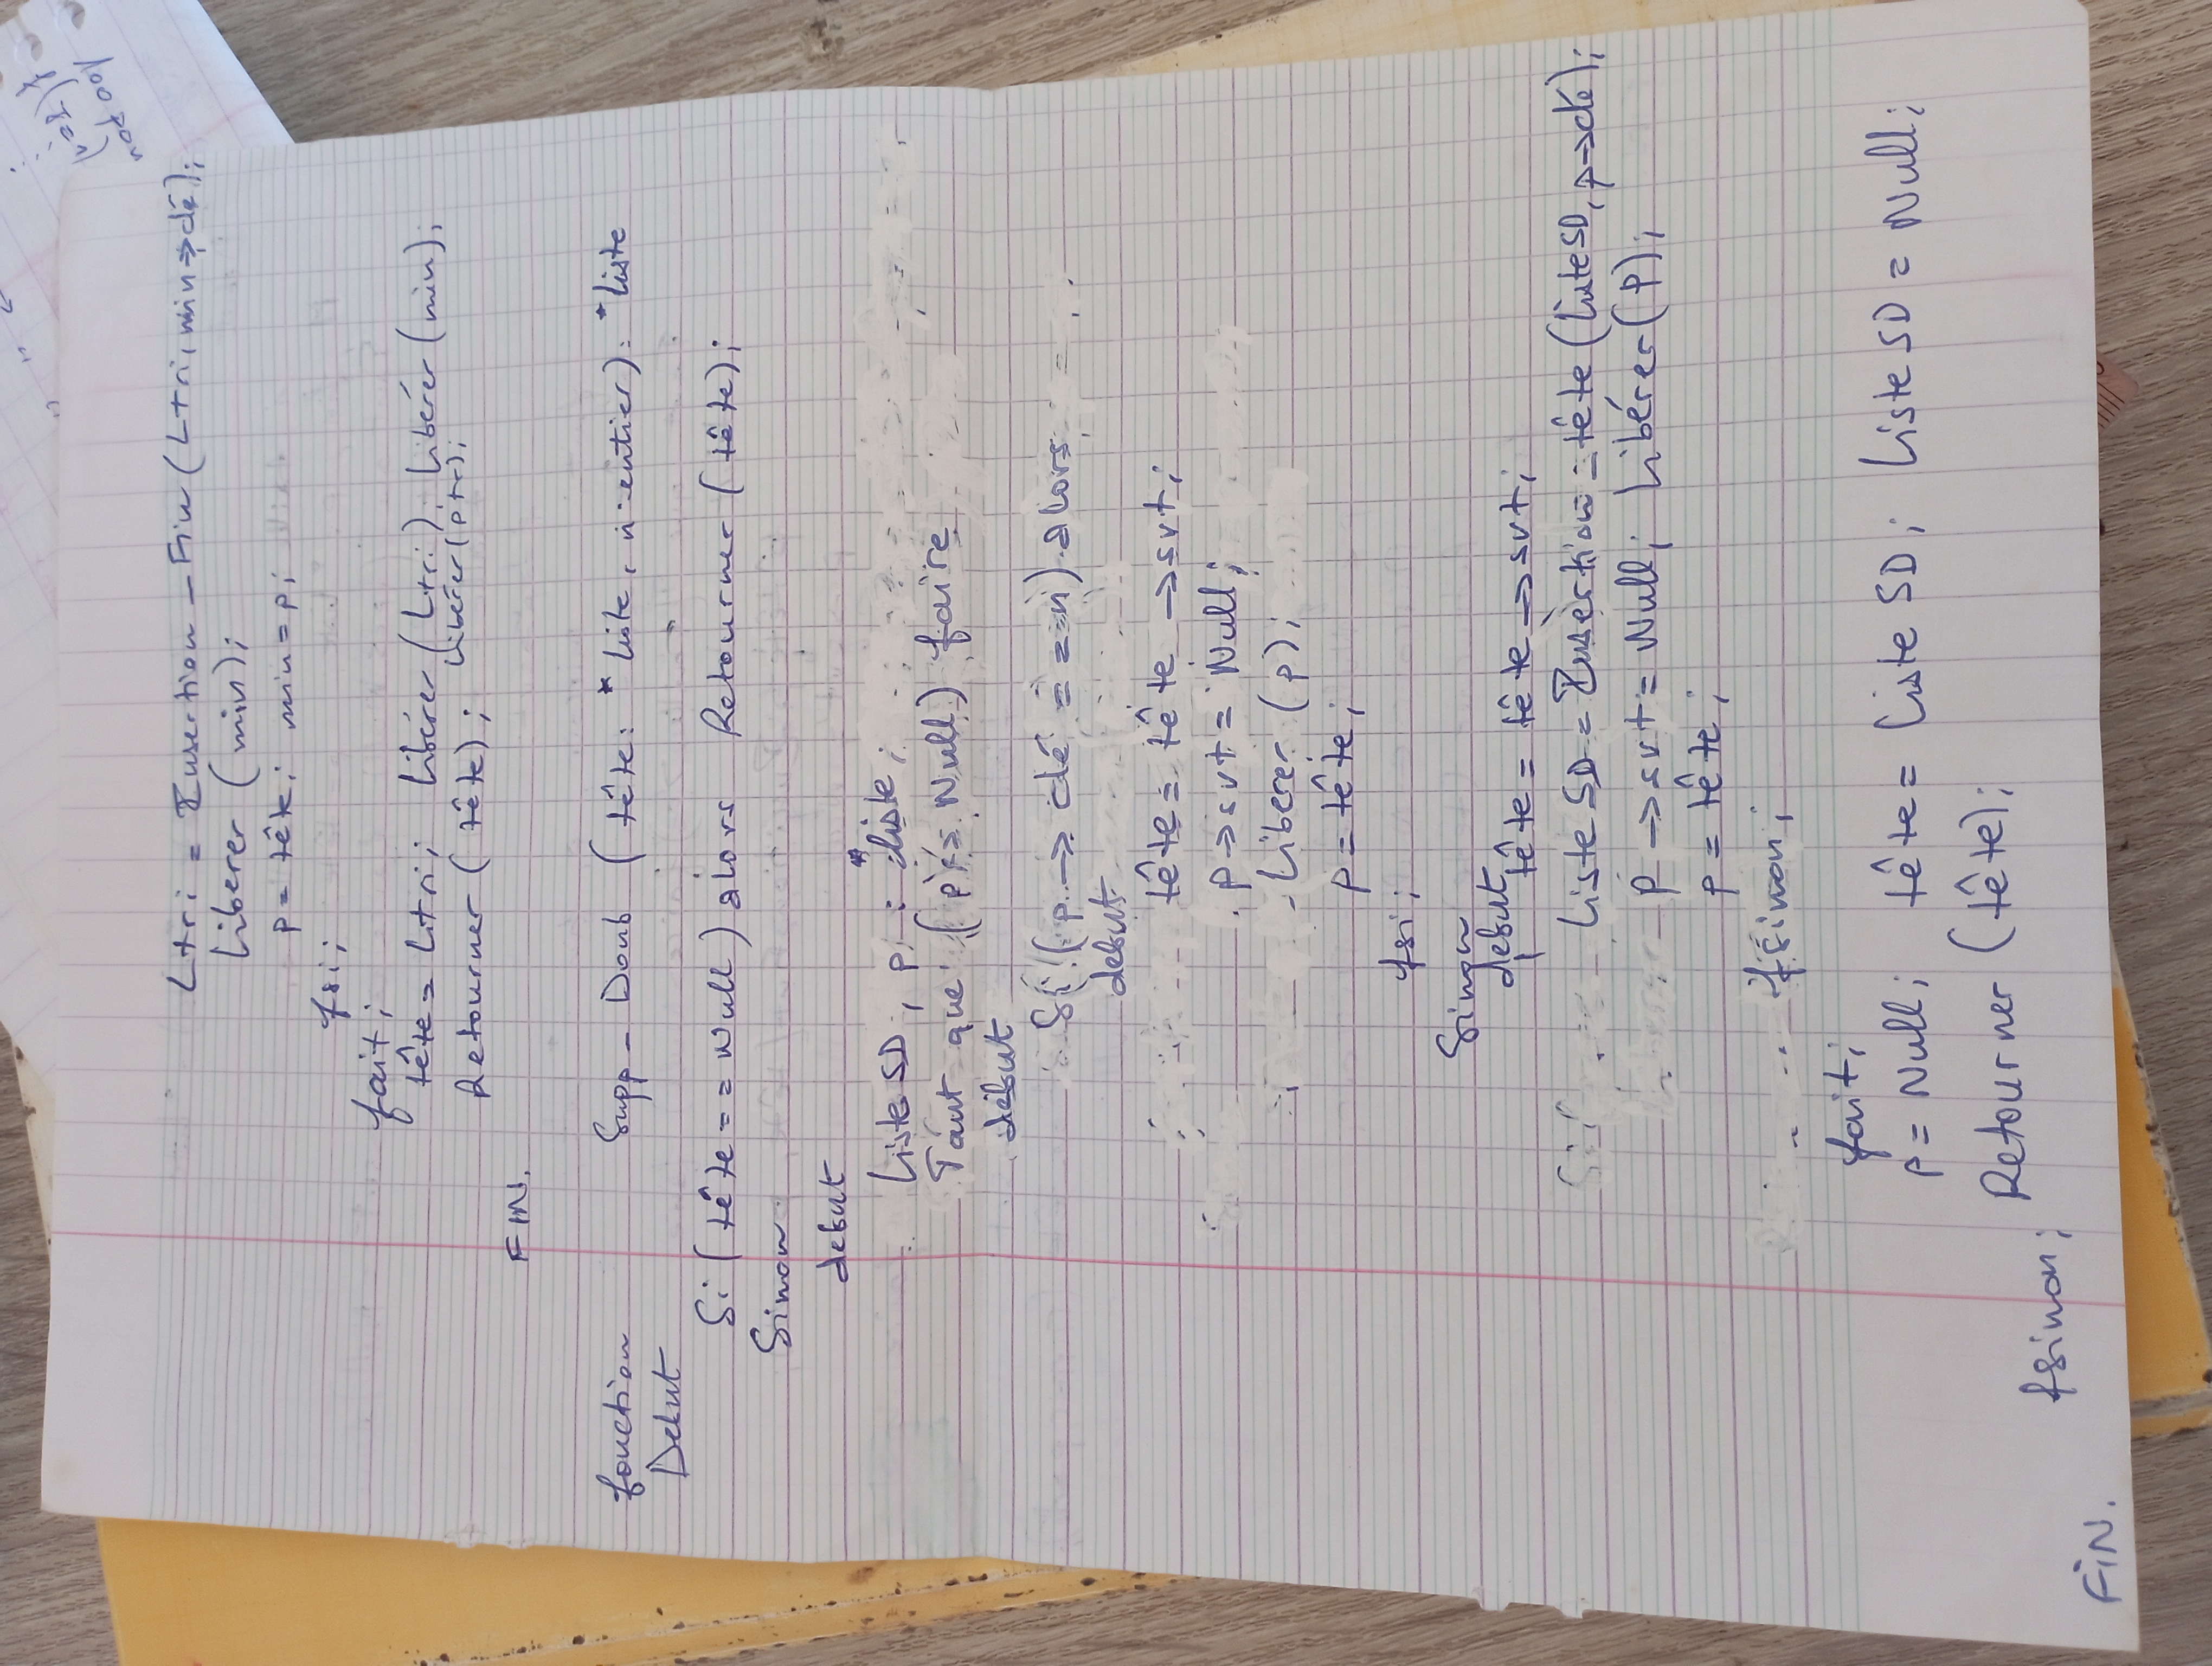 Ltri = Insertion_Fin (Ltri, min→clé);
Libérer (min);
p = tête; min = p;
fsi;
fait;
tête = Ltri; Libérer (Ltri); Libérer (min);
Retourner (tête);
FIN.
fonction Supp_Doub (tête: *liste, n: entier): *liste
Debut
Si (tête == Null) alors Retourner (tête);
Sinon
debut
Liste SD, p : *liste;
Tant que (p != Null) faire
debut
Si (p → clé == n) alors
debut
tête = tête → svt;
p → svt = Null;
Liberer (p);
p = tête;
fsi;
Sinon
debut
tête = tête → svt;
Liste SD = Insertion_tête (Liste SD, p → clé);
p → svt = Null; Libérer (p);
p = tête;
fsinon;
fait;
p = Null; tête = Liste SD; Liste SD = Null;
Retourner (tête);
fsinon;
FIN.